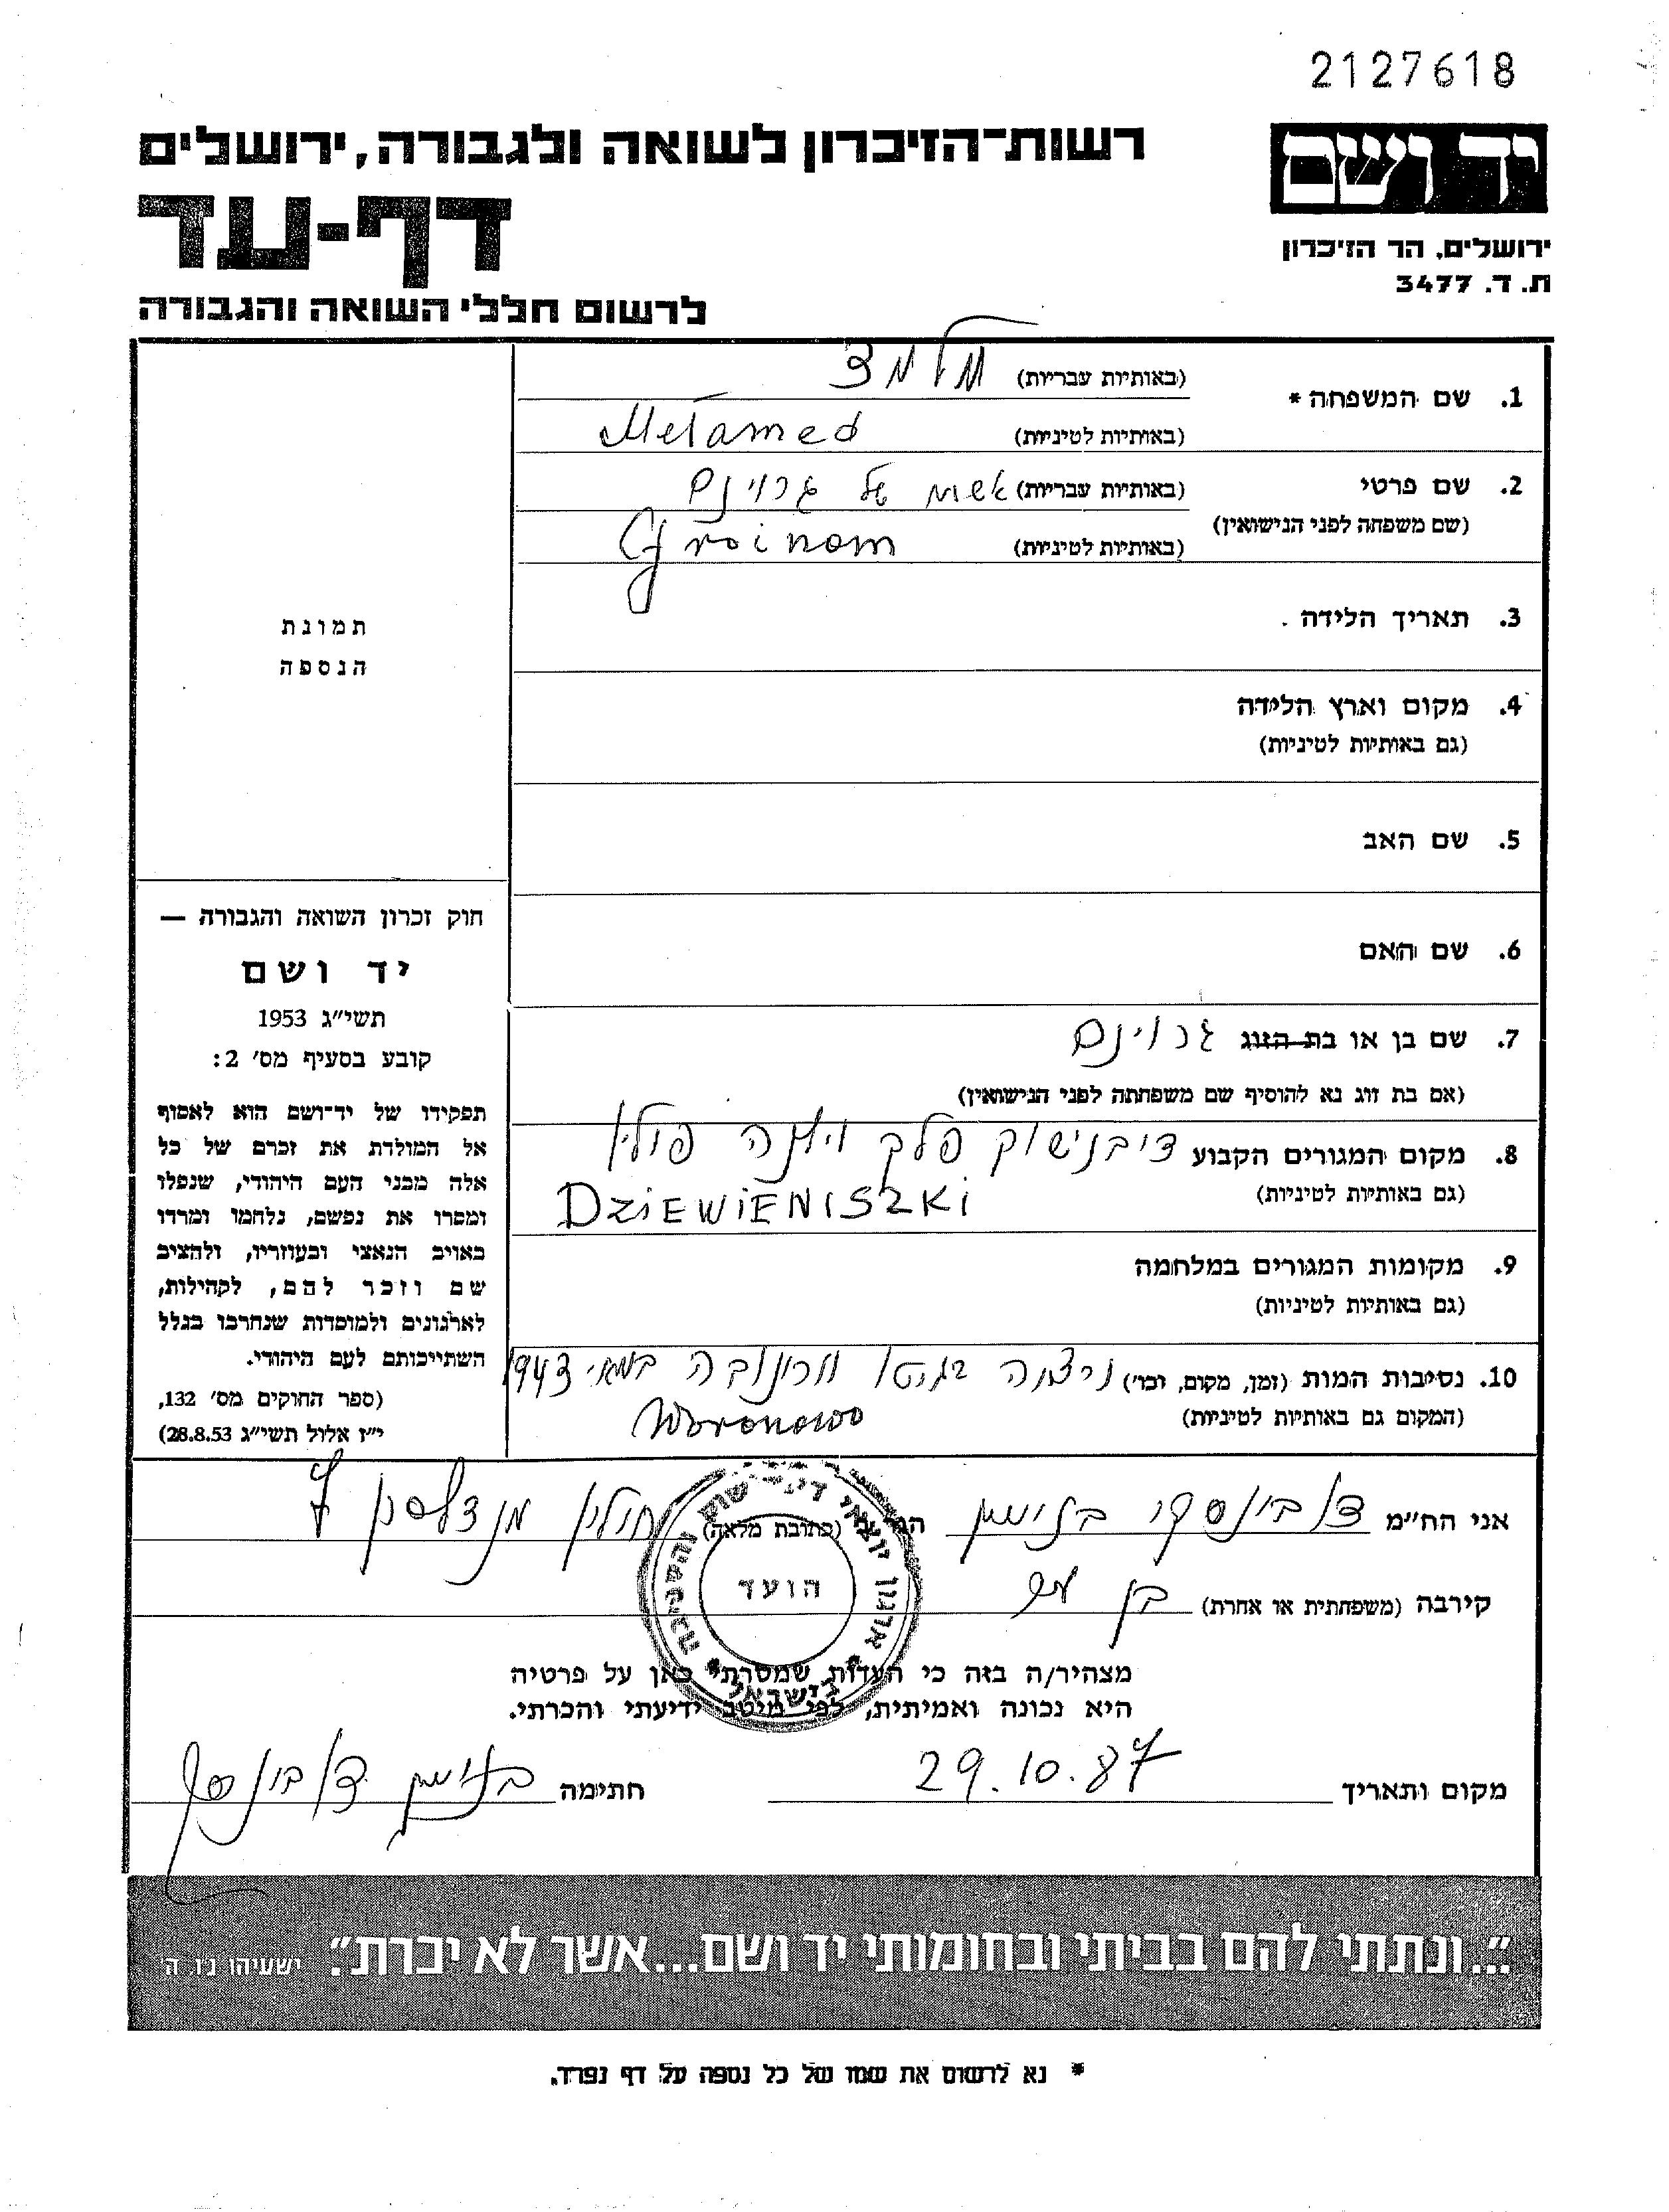 2127618
יד ושם
רשות־הזיכרון לשואה ולגבורה, ירושלים
דף-עד
ירושלים, הר הזיכרון
ת. ד. 3477
לרשום חללי השואה והגבורה
1. שם המשפחה *
(באותיות עבריות) מלמד
(באותיות לטיניות) Melamed
2. שם פרטי
(באותיות עבריות) אשתו של גרוינם
(שם משפחה לפני הנישואין)
(באותיות לטיניות) Groinom
3. תאריך הלידה
תמונת
הנספה
4. מקום וארץ הלידה
(גם באותיות לטיניות)
5. שם האב
6. שם האם
7. שם בן או בת הזוג גרוינם
(אם בת זוג נא להוסיף שם משפחתה לפני הנישואין)
8. מקום המגורים הקבוע דיבנישוק פלך וילנה פולין
(גם באותיות לטיניות) DZIEWIENISZKI
9. מקומות המגורים במלחמה
(גם באותיות לטיניות)
10. נסיבות המות (זמן, מקום, וכו׳) נרצחה בגיטו וורונובה במאי 1943
(המקום גם באותיות לטיניות) Woronowo
חוק זכרון השואה והגבורה —
יד ושם
תשי״ג 1953
קובע בסעיף מס׳ 2:
תפקידו של יד־ושם הוא לאסוף
אל המולדת את זכרם של כל
אלה מבני העם היהודי, שנפלו
ומסרו את נפשם, נלחמו ומרדו
באויב הנאצי ובעוזריו, ולהציב
שם וזכר להם, לקהילות,
לארגונים ולמוסדות שנחרבו בגלל
השתייכותם לעם היהודי.
(ספר החוקים מס׳ 132,
י״ז אלול תשי״ג 28.8.53)
אני הח״מ (כתובת מלאה) חולון מנדלסון 7
קירבה (משפחתית או אחרת) בן
הועד
מצהיר/ה בזה כי העדות שמסרתי כאן על פרטיה
היא נכונה ואמיתית, לפי מיטב ידיעתי והכרתי.
מקום ותאריך 29.10.87 חתימה
״...ונתתי להם בביתי ובחומותי יד ושם...אשר לא יכרת״. ישעיהו נ״ו, ה׳
* נא לרשום את שמו של כל נספה על דף נפרד.